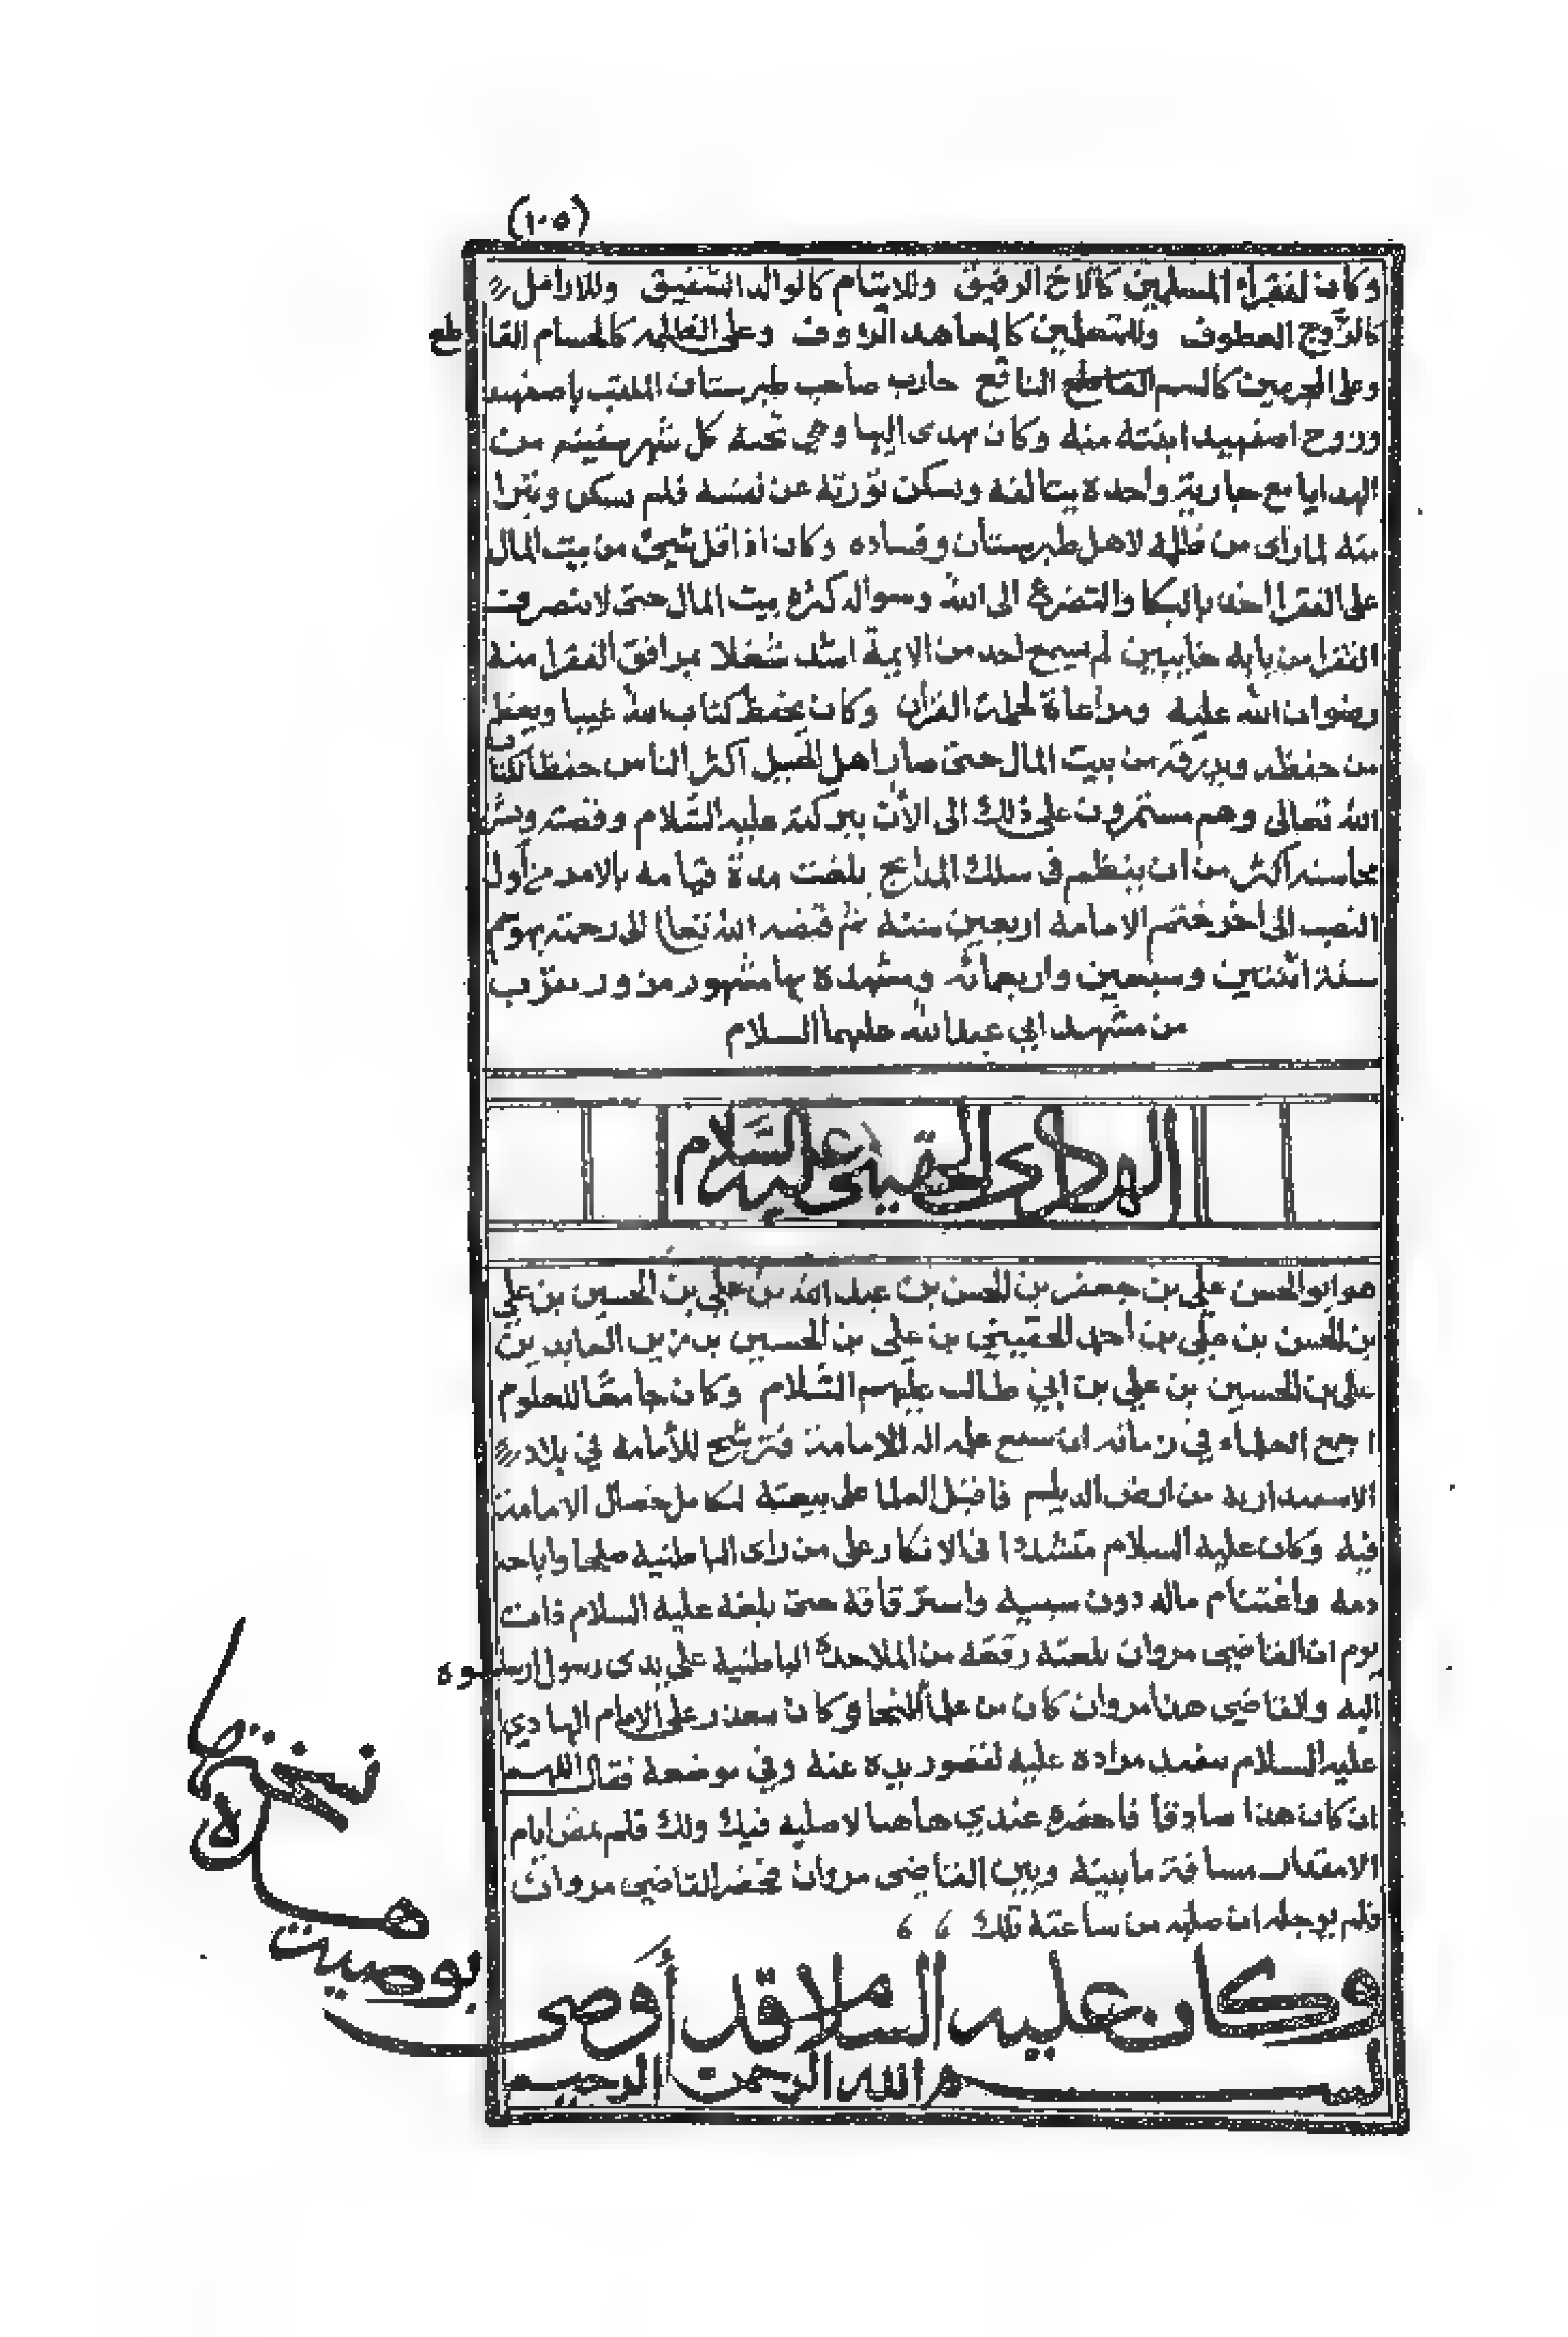 (١٠٥)
وكان لفقراء المسلمين كالاخ الرفيق وللايتام كالوالد الشفيق وللارامل
كالزوج العطوف وللمتعلمين كالمعاهد الرووف وعلى الظلمه كالحسام القاطع
وعلى المجرمين كالسم الناقع حارب صاحب طبرستان الملقب باصفهبد
وزوج اصفهبد ابنته منه وكان يهدى اليها وهي تحته كل شهر سفينه من
الهدايا مع جارية واحدة يتالفه ويسكن ثورته عن نفسه فلم يسكن وتبرا
منه لما راى من ظلمه لاهل طبرستان وفساده وكان اذا قل شيئ من بيت المال
على الفقرا اخذ بالبكا والتضرع الى الله وسواله كثرة بيت المال حتى لا ينصرف
الفقرا من بابه خايبين لم يسمع لحد من الايمة اشد شغلا بمرافق الفقرا منه
رضوان الله عليه ومراعاة لحملة القران وكان يحفظ كتاب الله غيبا ويعظم
من حفظه ويرزقه من بيت المال حتى صار اهل الجبيل اكثر الناس حفظا لكتاب
الله تعالى وهم مستمرون على ذلك الى الآن ببركته عليه السّلام وقصته ونشر
محاسنه اكثر من ان ينظم في سلك المدايح بلغت مدة قيامه بالامر من أول
النصب الى اخر ختم الامامه اربعين سنة ثم قبضه الله تعالى الى رحمته بهوسم
سنة اثنتين وسبعين واربعمائه ومشهده بها مشهور مزور بقرب
من مشهد ابي عبدالله عليهما السلام
الهادي الحقيني عليه السّلام
هو ابو الحسن علي بن جعفر بن الحسن بن عبد الله بن علي بن الحسين بن علي
بن الحسن بن علي بن احمد الحقيني بن علي بن الحسين بن زين العابدين
علي بن الحسين بن علي بن ابي طالب عليهم السّلام وكان جامعًا للعلوم
اجمع العلماء في زمانه ان سبع علمه اله للامامة فترشح للأمامه في بلاد
الاسبيداريه من ارض الديلم فاقبل العلما على بيعته لتكامل خصال الامامة
فيه وكان عليه السلام متشددا في الانكار على من راى الباطنية صلحا واباحه
دمه واغتنام ماله دون سبيه واسترقاقه حتى بلغه عليه السلام ذات
يوم ان القاضي مروان بلغته رقعة من الملاحدة الباطنية على يدى رسول ارسلوه
اليه والقاضي هذا مروان كان من علما وكان يعذر على الامام الهادي
عليه السلام مراده عليه لقصور يده عنه وفي موضعة فقال اللهم
ان كان هذا صادقا فاحضره عندي هاهنا لاصلبه فيك ولك فلم تمض ايام
الا مقدار مسافة ما بينه وبين القاضى مروان فحضر القاضي مروان
فلم يوجله ان صلبه من ساعته تلك
وكان عليه السلام قد أوصى بوصية هـــذه نسختها
بســـم الله الرحمن الرحيم